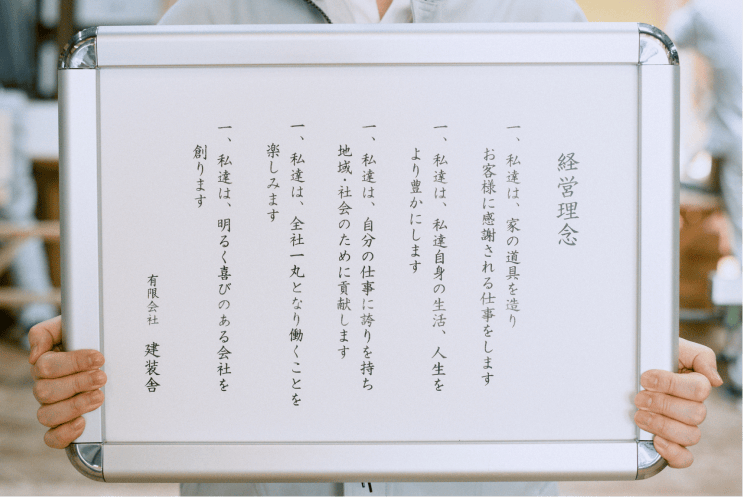 経営理念
一、私達は、家の道具を造り
お客様に感謝される仕事をします
一、私達は、私達自身の生活、人生を
より豊かにします
一、私達は、自分の仕事に誇りを持ち
地域・社会のために貢献します
一、私達は、全社一丸となり働くことを
楽しみます
一、私達は、明るく喜びのある会社を
創ります
有限会社 建装舎